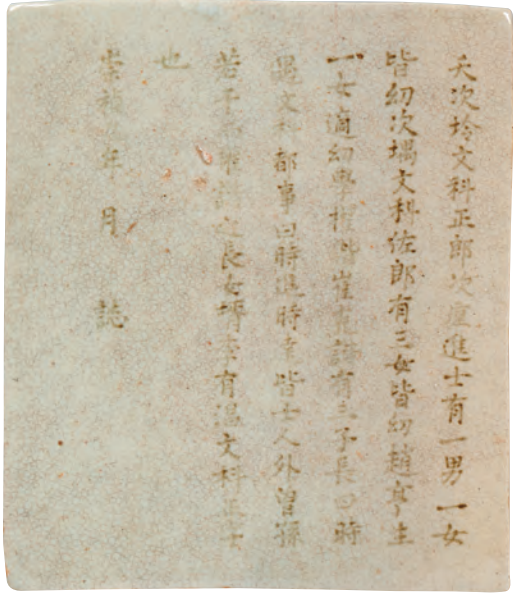 夭次坽文科正郎次㙻進士有一男一女
皆幼次堣文科佐郎有三女皆幼趙亨生
一女適幼學權 崔克諧有三子長曰時
遇文科都事曰時進時幸皆士人外曾孫
若干 之長女壻李有湿文科正言
也
崇禎 年 月 誌